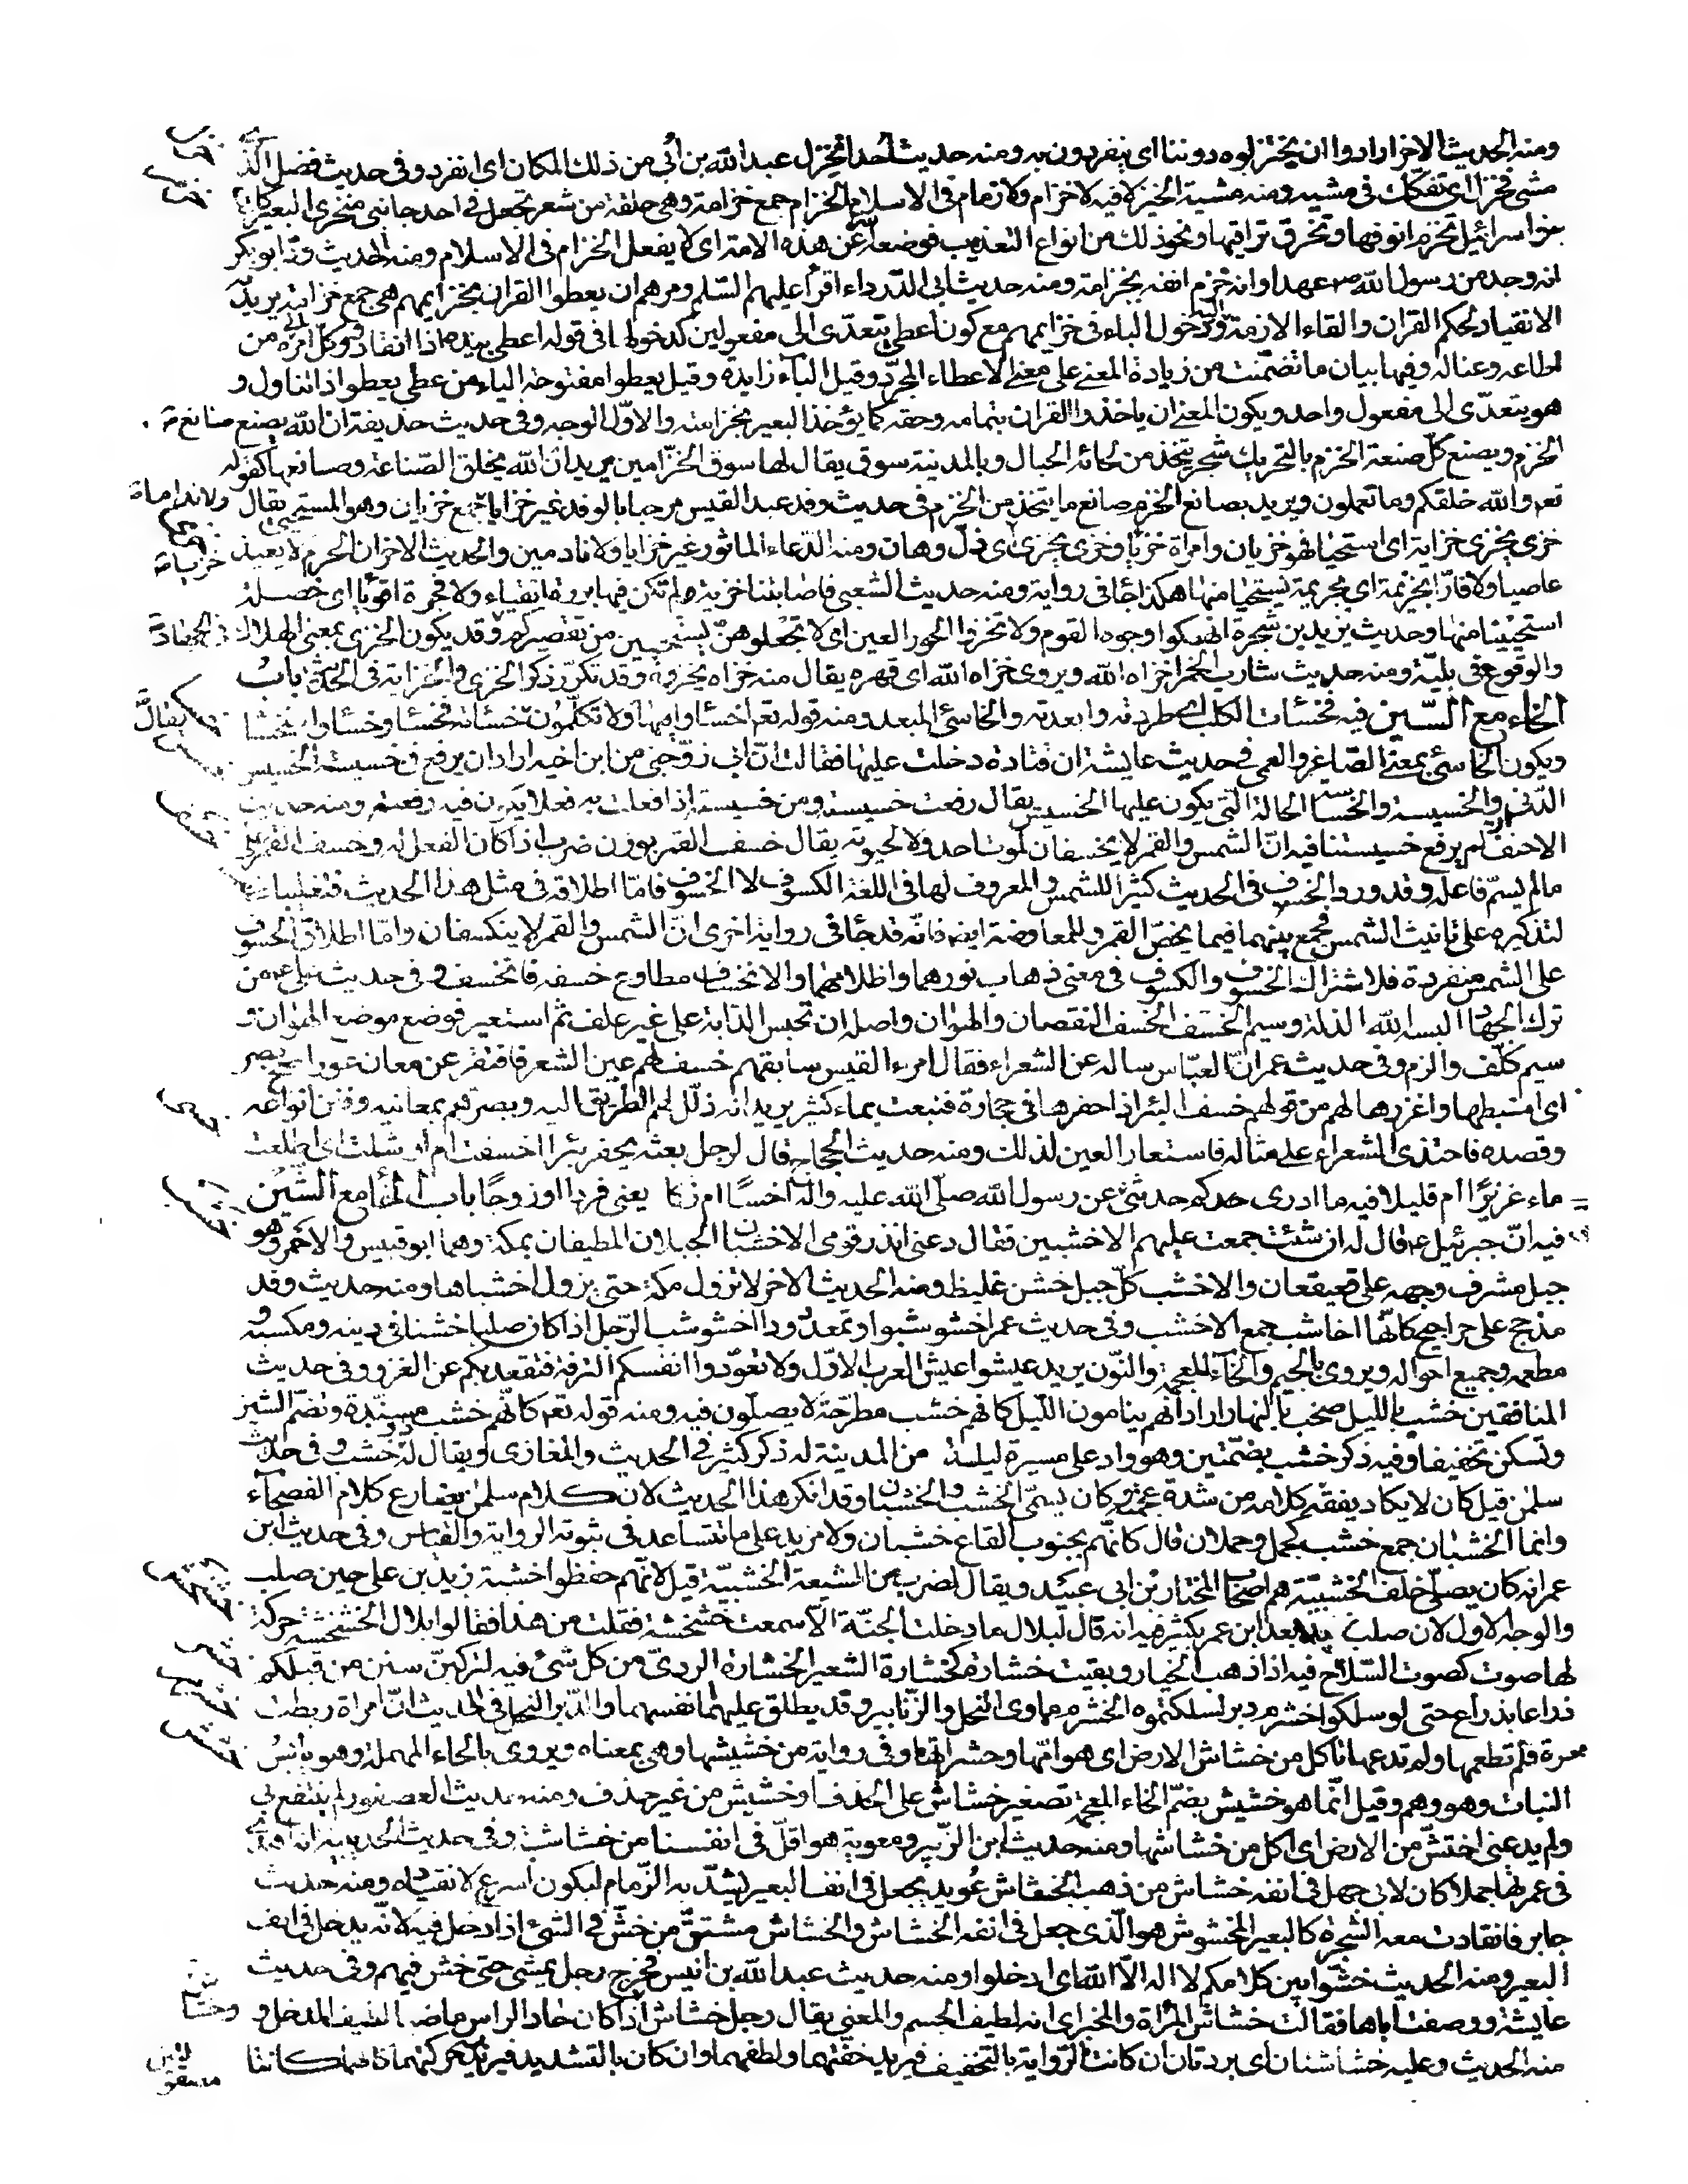 ومنه الحديث الاخر ارادوا ان يختزلوه دوننا اى ينفردون به ومنه حديث احد انخزل عبد الله بن ابى من ذلك المكان اى انفرد وفى حديث فضل الذى
مشى فخزل اى تفكك فى مشيه ومنه مشية الخيزلى فيه لا خزام ولا زمام فى الاسلام الخزام جمع خزامة وهى حلقة من شعر تجعل فى احد جانبى منخرى البعير كانت
بنو اسرائيل تخزم انوفها وتخرق تراقيها ونحو ذلك من انواع التعذيب فوضعه الله عن هذه الامة اى لا يفعل الخزام فى الاسلام ومنه الحديث ودّ ابو بكر
انه وجد من رسول الله ص عهدا وانه خزم انفه بخزامة ومنه حديث ابى الدرداء اقرأ عليهم السلم ومرهم ان يعطوا القران بخزايمهم هى جمع خزامة يريد به
الانقياد لحكم القران والقاء الازمة اليه ودخول الباء فى خزايمهم مع كون اعطى يتعدى الى مفعولين كدخولها فى قوله اعطى بيده اذا انقاد ووكل امره الى من
اطاعه وعنا له وفيها بيان ما تضمنت من زيادة المعنى على معنى الاعطاء المجرد وقيل الباء زايدة وقيل يعطوا مفتوحة الياء من عطى يعطوا اذا تناول و
هو يتعدى الى مفعول واحد ويكون المعنى ان ياخذوا القران بتمامه وحقه كما يؤخذ البعير بخزامته والاول الوجه وفى حديث حذيفة ان الله يصنع صانع
الخزم ويصنع كل صنعة الخزم بالتحريك شجر يتخذ من لحائه الحبال وبالمدينة سوق يقال لها سوق الخزامين يريد ان الله يخلق الصناعة وصانعها كقوله
تعم والله خلقكم وما تعملون ويريد بصانع الخزم صانع ما يتخذ من الخزم فى حديث وفد عبد القيس مرحبا بالوفد غير خزايا جمع خزيان وهو المستحيى يقال ولا ندامى
خزى يخزى خزاية اى استحيا فهو خزيان وامراة خزيا وخزى يخزى اى ذل وهان ومنه الدعاء الماثور غير خزايا ولا نادمين والحديث الاخر ان الحرم لا يعيذ
عاصيا ولا فارا بخزية اى بجريمة يستحيا منها هكذا جا فى رواية ومنه حديث الشعبى فاصابتنا خزية لم نكن فيها بررة اتقياء ولا فجرة اقويا اى خصلة
استحيينا منها وحديث يزيد بن شجرة انهكوا وجوه القوم ولا تخزوا الحور العين اى لا تجعلوهن يستحيين من تقصيركم وقد يكون الخزى بمعنى الهلاك
والوقوع فى بلية ومنه حديث شارب الخمر اخزاه الله ويروى خزاه الله اى قهره يقال منه خزاه يخزوه وقد تكرر ذكر الخزى والخزاية فى الحديث باب
الخاء مع السين فيه فخسئات الكلب اى طردته وابعدته والخاسئ المبعد ومنه قوله تعم اخسئوا فيها ولا تكلمون يقال خسئاته فخسئ وخسئا وانخسئا
ويكون الخاسئ بمعنى الصاغر والقمى فى حديث عايشة ان فتاة دخلت عليها فقالت ان ابى زوجنى من ابن اخيه اراد ان يرفع بى خسيسته الخسيس
الدنى والخسيسة والخساسة الحالة التى يكون عليها الخسيس يقال رفعت خسيسته ومن خسيسته اذا فعلت به فعلا يكون فيه رفعته ومنه حديث
الاحنف ان لم يرفع خسيستنا فيه ان الشمس والقمر لا يخسفان لموت احد ولا لحيوته يقال خسف القمر بوزن ضرب اذا كان الفعل له وخسف القمر على
ما لم يسم فاعله وقد ورد الخسوف فى الحديث كثيرا للشمس والمعروف لها فى اللغة الكسوف لا الخسوف فاما اطلاقه فى مثل هذا الحديث فتغليبا
لتذكيره على تانيث الشمس فجمع بينهما فيما يخص القمر وللمعاوضة ايضا فانه قد جا فى رواية اخرى ان الشمس والقمر لا ينكسفان واما اطلاق الخسوف
على الشمس منفردة فلاشتراك الخسوف والكسوف فى معنى ذهاب نورهما واظلامهما والانخساف مطاوع خسفه فانخسف وفى حديث على ع من
ترك الجهاد البسه الله الذلة وسيم الخسف الخسف النقصان والهوان واصله ان تحبس الدابة على غير علف ثم استعير فوضع موضع الهوان و
سيم كلف والزم وفى حديث عمر ان العباس ساله عن الشعراء فقال امرء القيس سابقهم خسف لهم عين الشعر فافتقر عن معان عور اصح بصر
اى انبطها واغزرها لهم من قولهم خسف البئر اذا حفرها فى حجارة فنبعت بماء كثير يريد انه ذلل لهم الطريق اليه وبصرهم بمعانيه وفنن انواعه
وقصده فاحتذى الشعراء على مثاله فاستعار العين لذلك ومنه حديث الحجاج قال لرجل بعثه يحفر بئرا اخسفت ام اوشلت اى اطلعت
ماء غزيرا ام قليلا فيه ما ادرى كم حدثنى عن رسول الله صلى الله عليه واله اخسا ام زكا يعنى فردا او زوجا باب الخاء مع الشين
فيه ان جبرئيل ع قال له ان شئت جمعت عليهم الاخشبين فقال دعنى انذر قومى الاخشبان الجبلان المطيفان بمكة وهما ابو قبيس والاحمر وهو
جبل مشرف وجهه على قعيقعان والاخشب كل جبل خشن غليظ ومنه الحديث الاخر لا تزول مكة حتى يزول اخشباها ومنه حديث وفد
مذحج على حراجيج كانها اخاشب جمع الاخشب وفى حديث عمر اخشوشبوا وتمعددوا اخشوشب الرجل اذا كان صلبا خشنا فى دينه وملبسه و
مطعمه وجميع احواله ويروى بالجيم وبالخاء المعجمة والنون يريد عيشوا عيش العرب الاول ولا تعودوا انفسكم الترفه فتقعد بكم عن الغزو وفى حديث
المنافقين خشب بالليل صخب بالنهار اراد انهم ينامون الليل كانهم خشب مطرحة لا يصلون فيه ومنه قوله تعم كانهم خشب مسندة وتضم الشين
وتسكن تخفيفا وفيه ذكر خشب بضمتين وهو واد على مسيرة ليلة من المدينة له ذكر كثير فى الحديث والمغازى ويقال له ذو خشب وفى حديث
سلمن قيل كان لا يكاد يفقه كلامه من شدة عجمته وكان يسمى الخشب الخشبان وقد انكر هذا الحديث لان كلام سلمن يضارع كلام الفصحاء
وانما الخشبان جمع خشب كحمل وحملان قال كانهم بجنوب القاع خشبان ولا مزيد على ما تتساعد فى ثبوته الرواية والقياس وفى حديث ابن
عمر انه كان يصلى خلف الخشبية هم اصحاب المختار بن ابى عبيد ويقال لضرب من الشيعة الخشبية قيل لانهم حفظوا خشبة زيد بن على حين صلب
والوجه الاول لان صلب زيد بعد ابن عمر بكثير فيه انه قال لبلال ما دخلت الجنة الا سمعت خشخشة فقلت من هذا فقالوا بلال الخشخشة حركة
لها صوت كصوت السلاح فيه اذا ذهب الخيار وبقيت خشارة كخشارة الشعير الخشارة الردى من كل شئ فيه لتركبن سنن من قبلكم
ذراعا بذراع حتى لو سلكوا خشرم دبر لسلكتموه الخشرم ماوى النحل والزنابير وقد يطلق عليهما انفسهما والدبر النحل فى الحديث ان امراة ربطت
هرة فلم تطعمها ولم تدعها تاكل من خشاش الارض اى هوامها وحشراتها وفى رواية من خشيشها وهى بمعناه ويروى بالحاء المهملة وهو يابس
النبات وهو وهم وقيل انما هو خشيش بضم الخاء المعجمة تصغير خشاش على الحذف او خشيش من غير حذف ومنه حديث العصفور لم ينتفع بى
ولم يدعنى اختش من الارض اى اكل من خشاشها ومنه حديث ابن الزبير ومعوية هو اقل فى انفسنا من خشاشة وفى حديث الحديبية انه اهدى
فى عمرتها جملا كان لابى جهل فى انفه خشاش من ذهب الخشاش عويد يجعل فى انف البعير يشد به الزمام ليكون اسرع لانقياده ومنه حديث
جابر فانقادت معه الشجرة كالبعير المخشوش هو الذى جعل فى انفه الخشاش والخشاش مشتق من خش فى الشئ اذا دخل فيه لانه يدخل فى انف
البعير ومنه الحديث خشوا بين كلامكم لا اله الا الله اى ادخلوا ومنه حديث عبد الله بن انيس فخرج رجل يمشى حتى خش فيهم وفى حديث
عايشة ووصفت اباها فقالت خشاش المراة والمخبر اى انه لطيف الجسم والمعنى يقال رجل خشاش اذا كان حاد الراس ماضيا لطيف المدخل و
منه الحديث وعليه خشاشتان اى بردتان ان كانت الرواية بالتخفيف فيريد خفتهما ولطفهما وان كان بالتشديد فيريد حركتهما كانهما كانتا